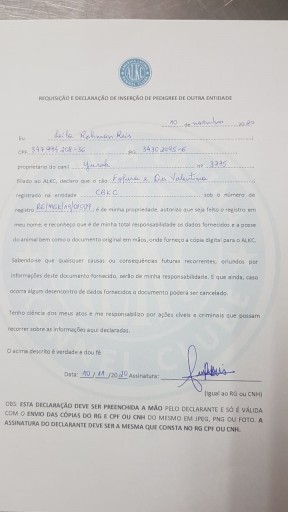 ALKC
REQUISIÇÃO E DECLARAÇÃO DE INSERÇÃO DE PEDIGREE DE OUTRA ENTIDADE
10 de novembro 2020
Eu Leila Rehman Reis
CPF RG
proprietário do canil nº 3375
filiado ao ALKC, declaro que o cão
registrado na entidade CBKC sob o número de
registro é de minha propriedade, autorizo que seja feito o registro em
meu nome, e reconheço que é de minha total responsabilidade os dados fornecidos e a posse
do animal bem como o documento original em mãos, onde forneço a cópia digital para o ALKC.
Sabendo-se que quaisquer causas ou consequências futuras recorrentes, oriundos por
informações deste documento fornecido, serão de minha responsabilidade. E que ainda, caso
ocorra algum desencontro de dados fornecidos o documento poderá ser cancelado.
Tenho ciência dos meus atos e me responsabilizo por ações cíveis e criminais que possam
recorrer sobre as informações aqui declaradas.
O acima descrito é verdade e dou fé
Data: 10/11/2020 Assinatura:
(Igual ao RG ou CNH)
OBS: ESTA DECLARAÇÃO DEVE SER PREENCHIDA A MÃO PELO DECLARANTE E SÓ É VÁLIDA
COM O ENVIO DAS CÓPIAS DO RG E CPF OU CNH DO MESMO EM JPEG, PNG OU FOTO. A
ASSINATURA DO DECLARANTE DEVE SER A MESMA QUE CONSTA NO RG CPF OU CNH.